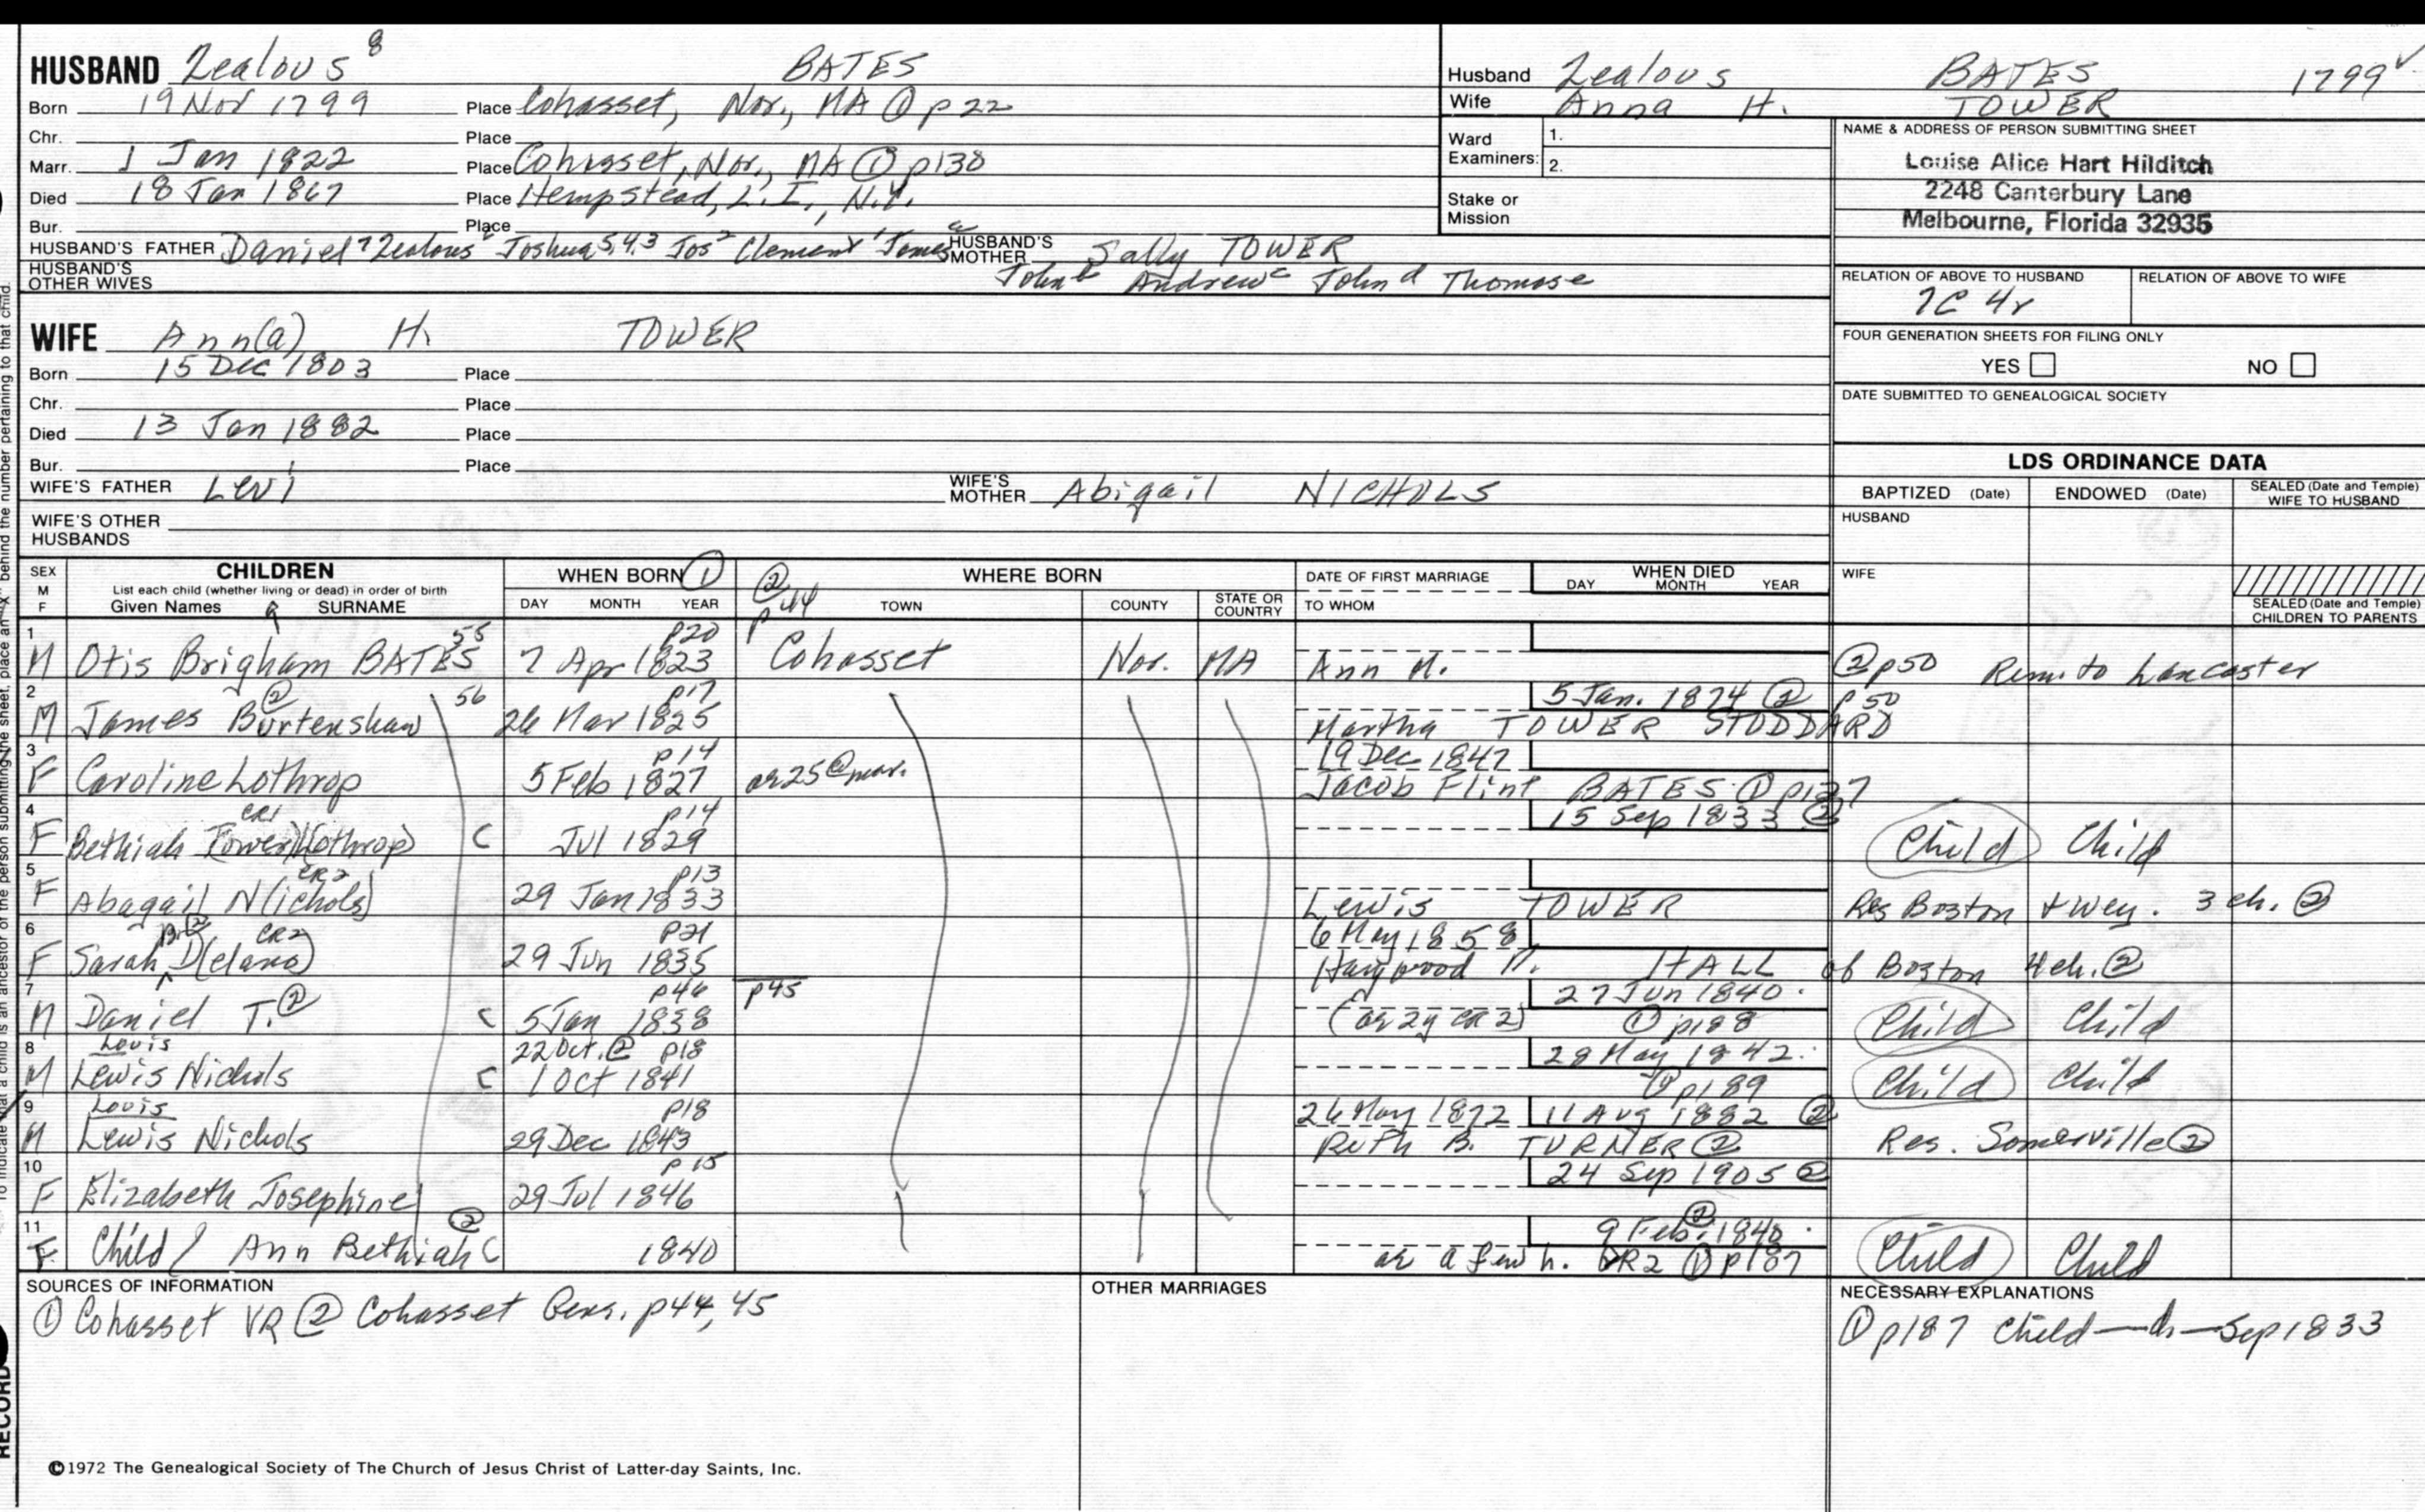 HUSBAND Zealous 8 BATES
Born 19 Nov 1799 Place Cohasset, Nor., MA ① p 22
Chr. Place
Marr. 1 Jan 1822 Place Cohasset, Nor., MA ① p138
Died 18 Jan 1867 Place Hempstead, L. I., N.Y.
Bur. Place
HUSBAND'S FATHER Daniel 7 Zealous 6 Joshua 5,4,3 Jos 2 Clement 1 James a HUSBAND'S MOTHER Sally TOWER
HUSBAND'S OTHER WIVES John b Andrew c John d Thomas e
Husband Zealous BATES 1799
Wife Anna H. TOWER
Ward Examiners: 1.
2.
Stake or Mission
NAME & ADDRESS OF PERSON SUBMITTING SHEET
Louise Alice Hart Hilditch
2248 Canterbury Lane
Melbourne, Florida 32935
RELATION OF ABOVE TO HUSBAND RELATION OF ABOVE TO WIFE
7C 4r
FOUR GENERATION SHEETS FOR FILING ONLY
YES NO
DATE SUBMITTED TO GENEALOGICAL SOCIETY
WIFE Ann(a) H. TOWER
Born 15 Dec 1803 Place
Chr. Place
Died 13 Jan 1882 Place
Bur. Place
WIFE'S FATHER Levi WIFE'S MOTHER Abigail NICHOLS
WIFE'S OTHER HUSBANDS
LDS ORDINANCE DATA
BAPTIZED (Date) ENDOWED (Date) SEALED (Date and Temple) WIFE TO HUSBAND
HUSBAND
WIFE
SEALED (Date and Temple) CHILDREN TO PARENTS
SEX M F CHILDREN WHEN BORN ① ② p44 WHERE BORN DATE OF FIRST MARRIAGE WHEN DIED
List each child (whether living or dead) in order of birth
Given Names SURNAME DAY MONTH YEAR TOWN COUNTY STATE OR COUNTRY TO WHOM DAY MONTH YEAR
1 55 p20
M Otis Brigham BATES 7 Apr 1823 Cohasset Nor. MA Ann M. ② p50 Rem. to Lancaster
2 ② 56 p17 5 Jan. 1874 ② p 50
M James Burtenshaw 26 Mar 1825 Martha TOWER STODDARD
3 p14 19 Dec 1847
F Caroline Lothrop 5 Feb 1827 ae 25 @ mar. Jacob Flint BATES ① p137
4 CR1 p14 15 Sep 1833 ②
F Bethiah (Tower)(Lothrop) C Jul 1829 Child Child
5 CR2 p13
F Abagail N(ichols) 29 Jan 1833 Lewis TOWER Res Boston + Wey. 3 ch. ②
6 B. ② CR2 p21 6 May 1858
F Sarah D(elano) 29 Jun 1835 Haywood M. HALL of Boston 4 ch. ②
7 p46 p45 27 Jun 1840
M Daniel T. ② C 5 Jan 1838 (ae 2y CR2) ① p188 Child Child
8 Louis 22 Oct. ② p18 28 May 1842
M Lewis Nichols C 1 Oct 1841 ① p189 Child Child
9 Louis p18 26 May 1872 11 Aug 1882 ②
M Lewis Nichols 29 Dec 1843 Ruth B. TURNER ② Res. Somerville ②
10 p 15 24 Sep 1905 ②
F Elizabeth Josephine 29 Jul 1846
11 ② 9 Feb. ② 1840
F Child / Ann Bethiah C 1840 ae a few h. CR2 ① p187 Child Child
SOURCES OF INFORMATION OTHER MARRIAGES NECESSARY EXPLANATIONS
① Cohasset VR ② Cohasset Gens. p44, 45
① p187 Child — d. — Sep 1833
©1972 The Genealogical Society of The Church of Jesus Christ of Latter-day Saints, Inc.
behind the number pertaining to that child.
RECORD